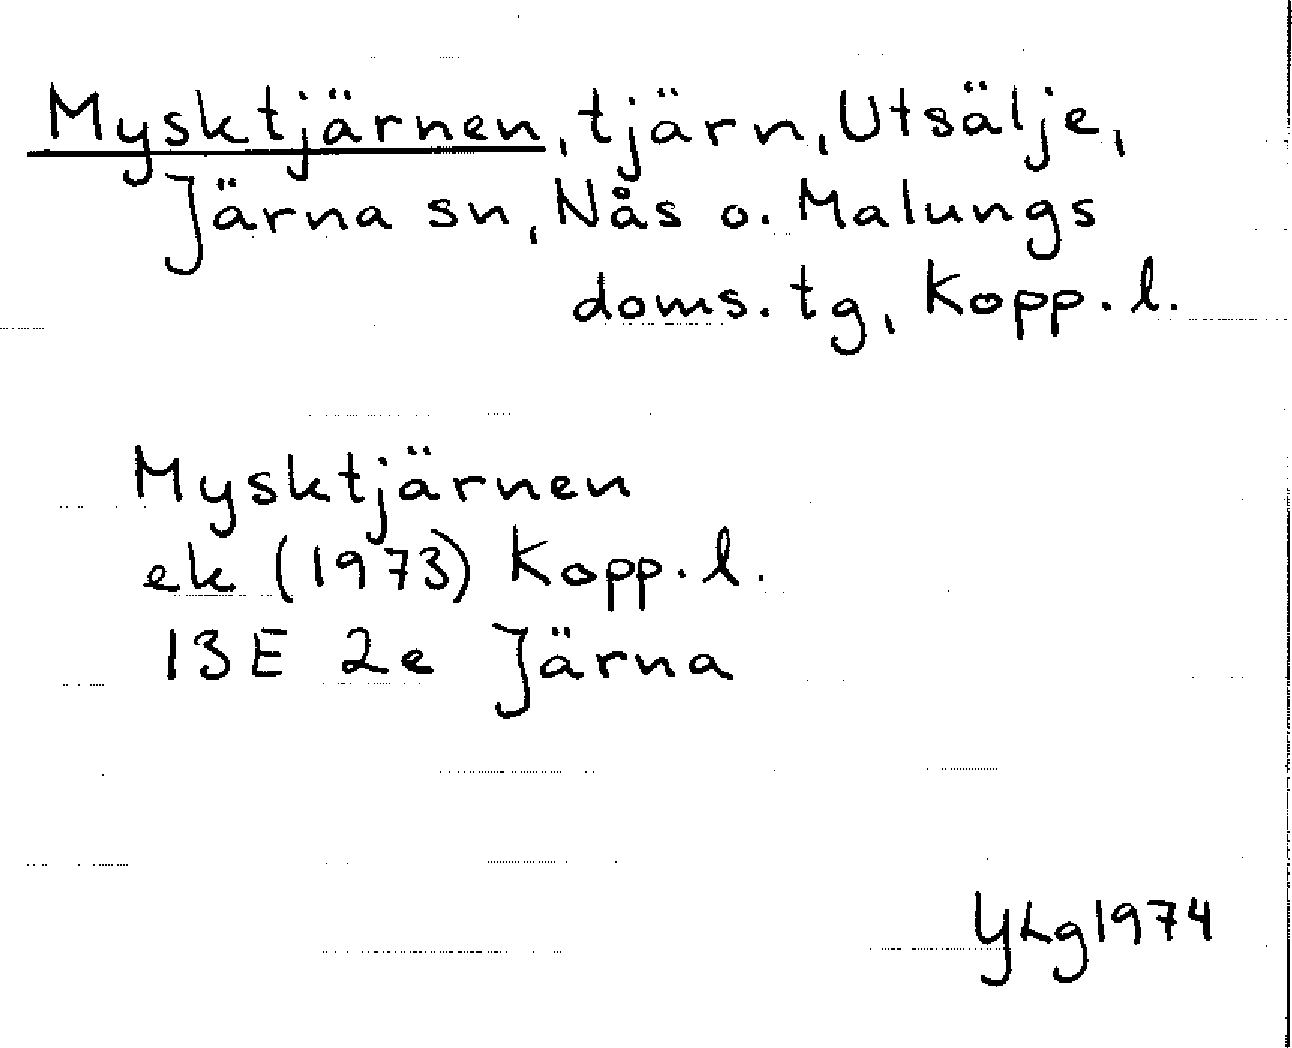 Mysktjärnen, tjärn, Utsälje,
Järna sn, Nås o. Malungs
doms. tg, Kopp. l.
Mysktjärnen
ek (1973) Kopp. l.
13E 2e Järna
YLg 1974